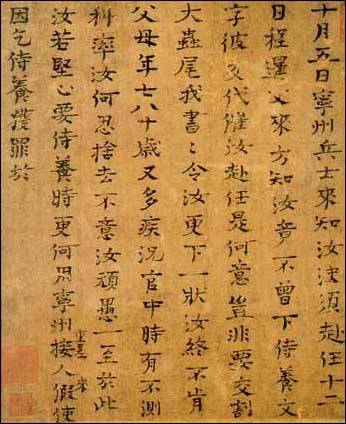 十月五日寧州兵士來知汝決須赴任十二
日程暹父來方知汝竟不曾下侍養文
字彼交代催汝赴任是何意豈非要交割
大蟲尾我書〻令汝更下一狀汝終不肯
父母年七八十歲又多疾況官中時有不測
科率汝何忍捨去不意汝頑愚一至於此
汝若堅心要侍養時更何用寧州重差接人來假使
因乞侍養獲罪於